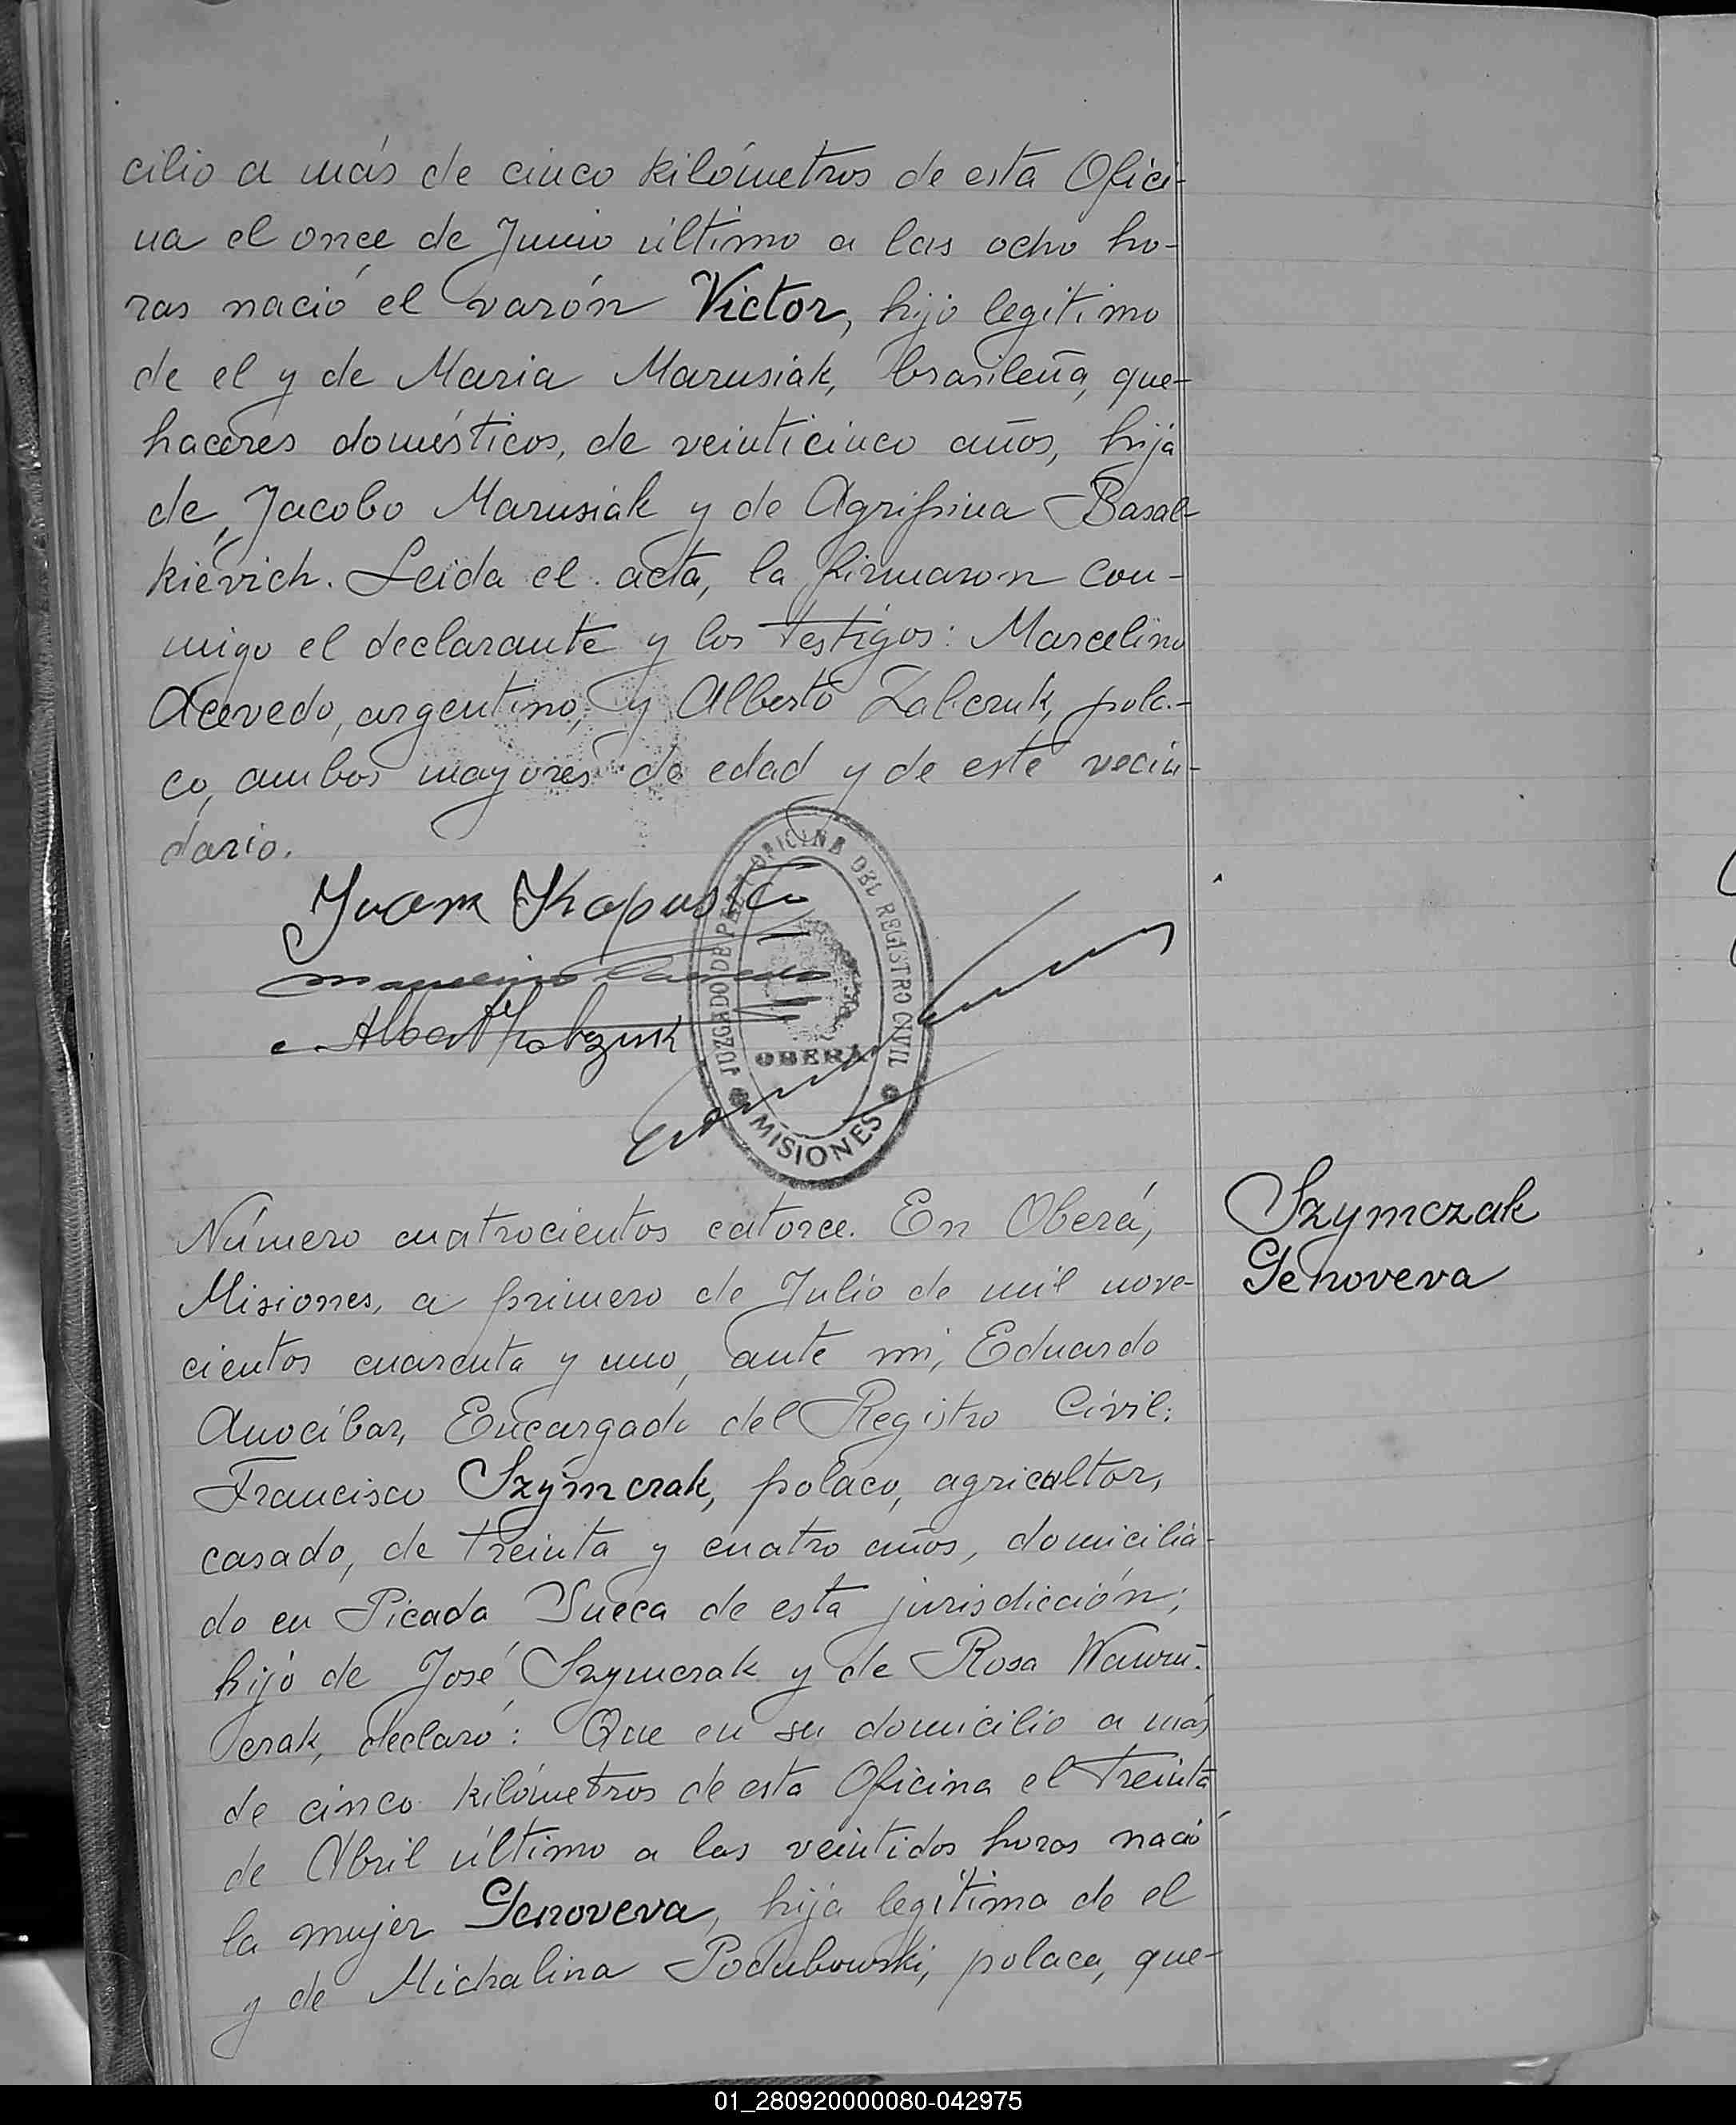 cilio a más de cinco kilómetros de esta Ofici-
na el once de Junio último a las ocho ho-
ras nació el varón Victor, hijo legítimo
de el y de Maria Marusiak, brasileña, que-
haceres domésticos, de veinticinco años, hija
de Jacobo Marusiak y de Agripina Basal-
kievich. Leida el acta, la firmaron con-
migo el declarante y los testigos: Marcelino
Acevedo, argentino, y Alberto Zabczuk, pola-
co, ambos mayores de edad y de este vecin-
dario.
Juan Kapusta
JUZGADO DE PAZ Y OFICINA DEL REGISTRO CIVIL
OBERÁ
MISIONES
Número cuatrocientos catorce. En Oberá,
Szymczak
Misiones, a primero de Julio de mil nove-
Genoveva
cientos cuarenta y uno, ante mi, Eduardo
Anocíbar, Encargado del Registro Civil:
Francisco Szymczak, polaco, agricultor,
casado, de treinta y cuatro años, domicilia-
do en Picada Sueca de esta jurisdicción;
hijo de José Szymczak y de Rosa
declaró: Que en su domicilio a más
de cinco kilómetros de esta Oficina el treinta
de Abril último a las veintidos horas nació
la mujer Genoveva, hija legítima de el
y de Michalina Podubowski, polaca, que-
01_280920000080-042975